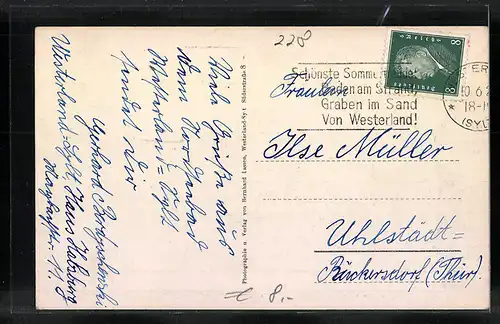 228
Viele Grüße aus
dem Nordseebad
Westerland-Sylt
sendet Dir
Gerhard
Westerland-Sylt, Haus Habsburg
Photographie u. Verlag von Bernhard Lassen, Westerland-Sylt Süderstraße 8
Schönste Sommer
Baden am Strand
Graben im Sand
Von Westerland!
Deutsches Reich
8 8
10.6.2
* 18-1
(SYLT
Fräulein
Ilse Müller
Uhlstädt=
Rückersdorf (Thür).
€ 8,-